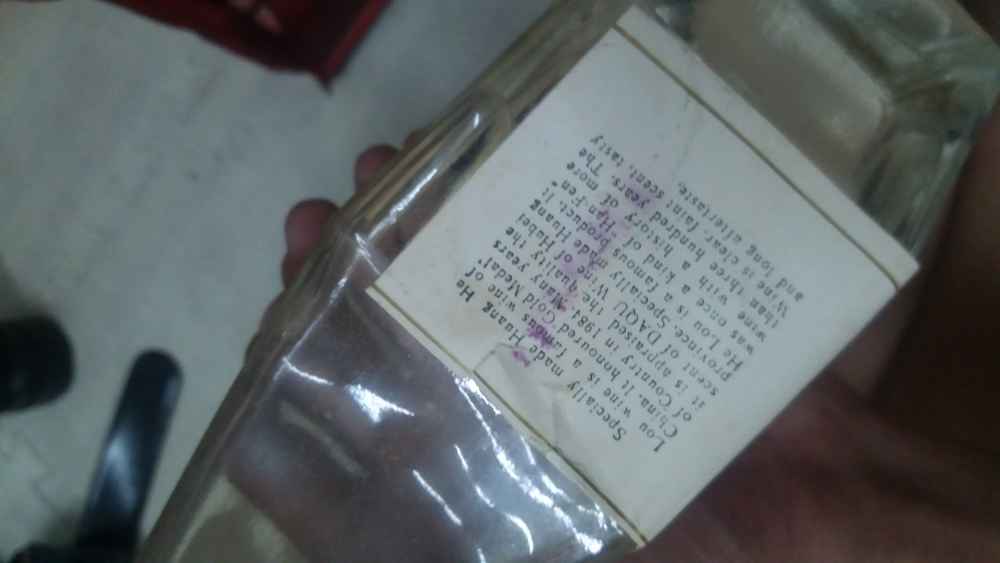 Specially made Huang He
Lou wine is a famous wine of
China. It honoured Gold Medal"
of Country in 1984. Many years
it is appraised the quality the
scent of DAQU Wine of Hubei
province. Specially made Huang
He Lou is a famous product. It
was once a kind of "Han Fen"
wine with a history of more
than three hundred years. The
Wine is clear, faint scent, tasty
and long aftertaste.